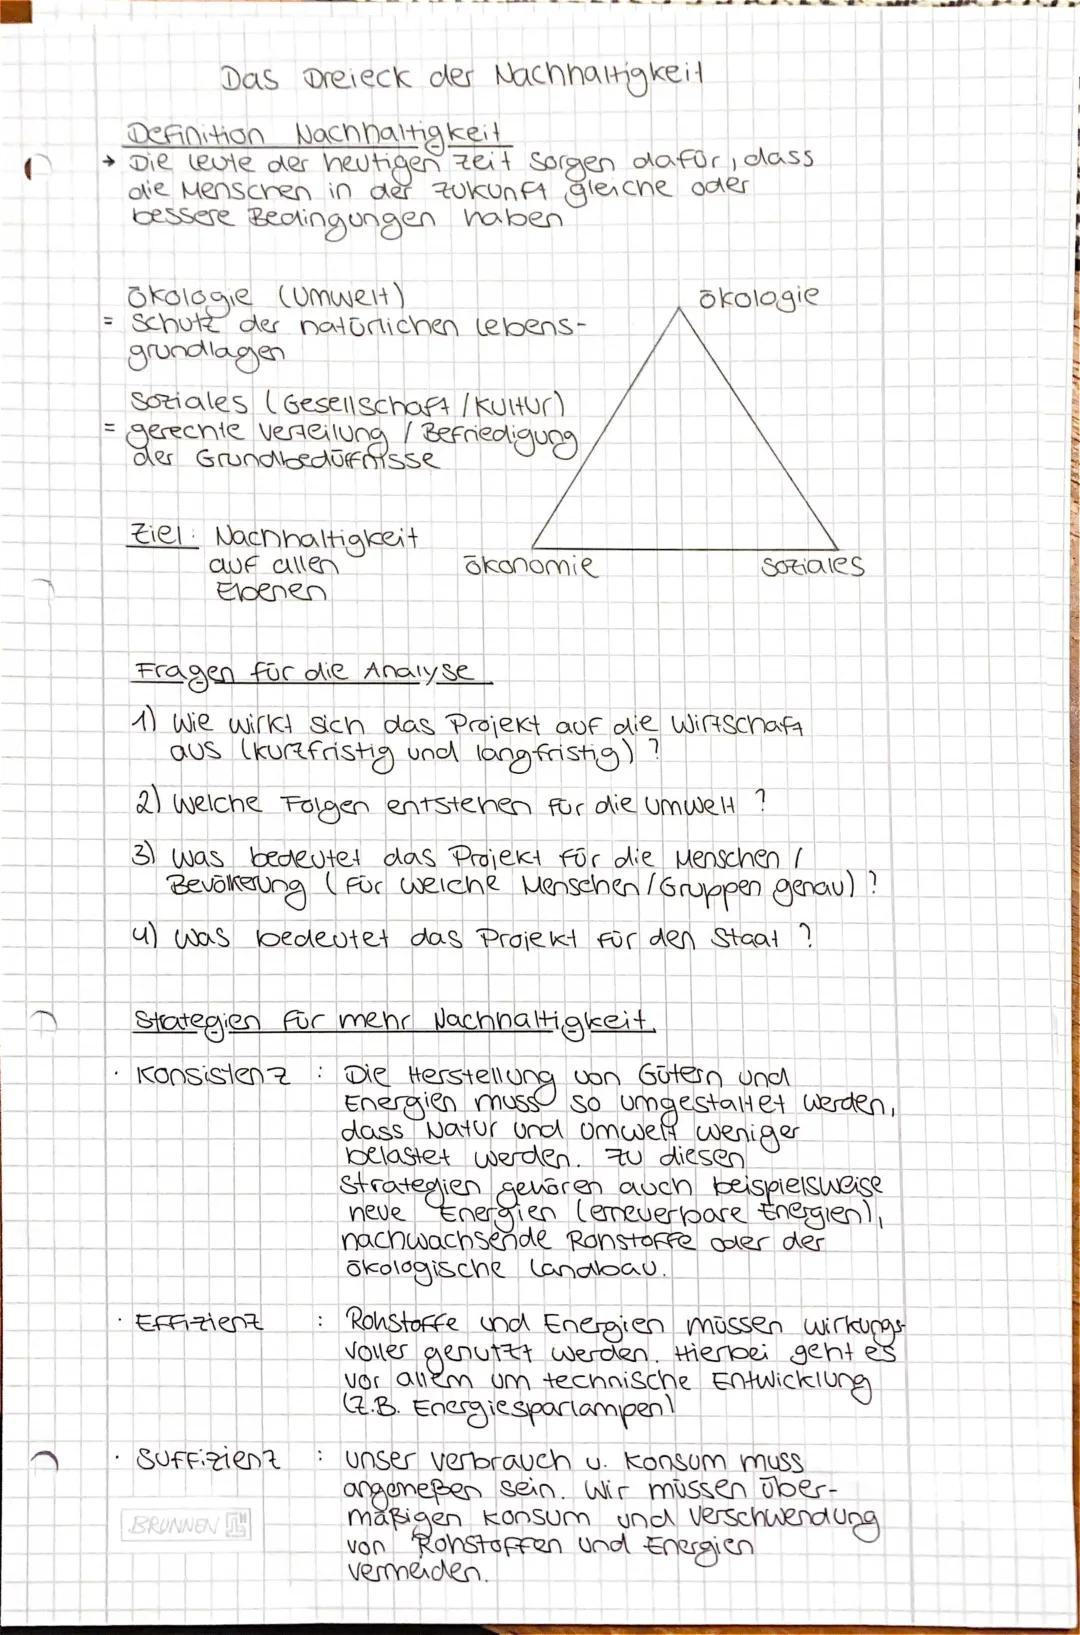 Das Dreieck der Nachhaltigkeit
Definition Nachhaltigkeit
→ Die Leute der heutigen Zeit sorgen dafür, dass
die Menschen in der Zukunft gleiche oder
bessere Bedingungen haben
Ökologie (Umwelt)
= Schutz der natürlichen Lebens-
grundlagen
Soziales (Gesellschaft / Kultur)
= gerechte Verteilung / Befriedigung
der Grundbedürfnisse
Ziel: Nachhaltigkeit
auf allen
Ebenen
Ökologie
Ökonomie
Soziales
Fragen für die Analyse
1) Wie wirkt sich das Projekt auf die Wirtschaft
aus (kurzfristig und langfristig) ?
2) Welche Folgen entstehen für die Umwelt ?
3) Was bedeutet das Projekt für die Menschen /
Bevölkerung (für welche Menschen / Gruppen genau) ?
4) Was bedeutet das Projekt für den Staat ?
Strategien für mehr Nachhaltigkeit
· Konsistenz : Die Herstellung von Gütern und
Energien muss so umgestaltet werden,
dass Natur und Umwelt weniger
belastet werden. Zu diesen
Strategien gehören auch beispielsweise
neue Energien (erneuerbare Energien),
nachwachsende Rohstoffe oder der
ökologische Landbau.
· Effizienz : Rohstoffe und Energien müssen wirkungs-
voller genutzt werden. Hierbei geht es
vor allem um technische Entwicklung
(z.B. Energiesparlampen)
· Suffizienz : Unser Verbrauch u. Konsum muss
angemeßen sein. Wir müssen über-
mäßigen Konsum und Verschwendung
von Rohstoffen und Energien
vermeiden.
BRUNNEN